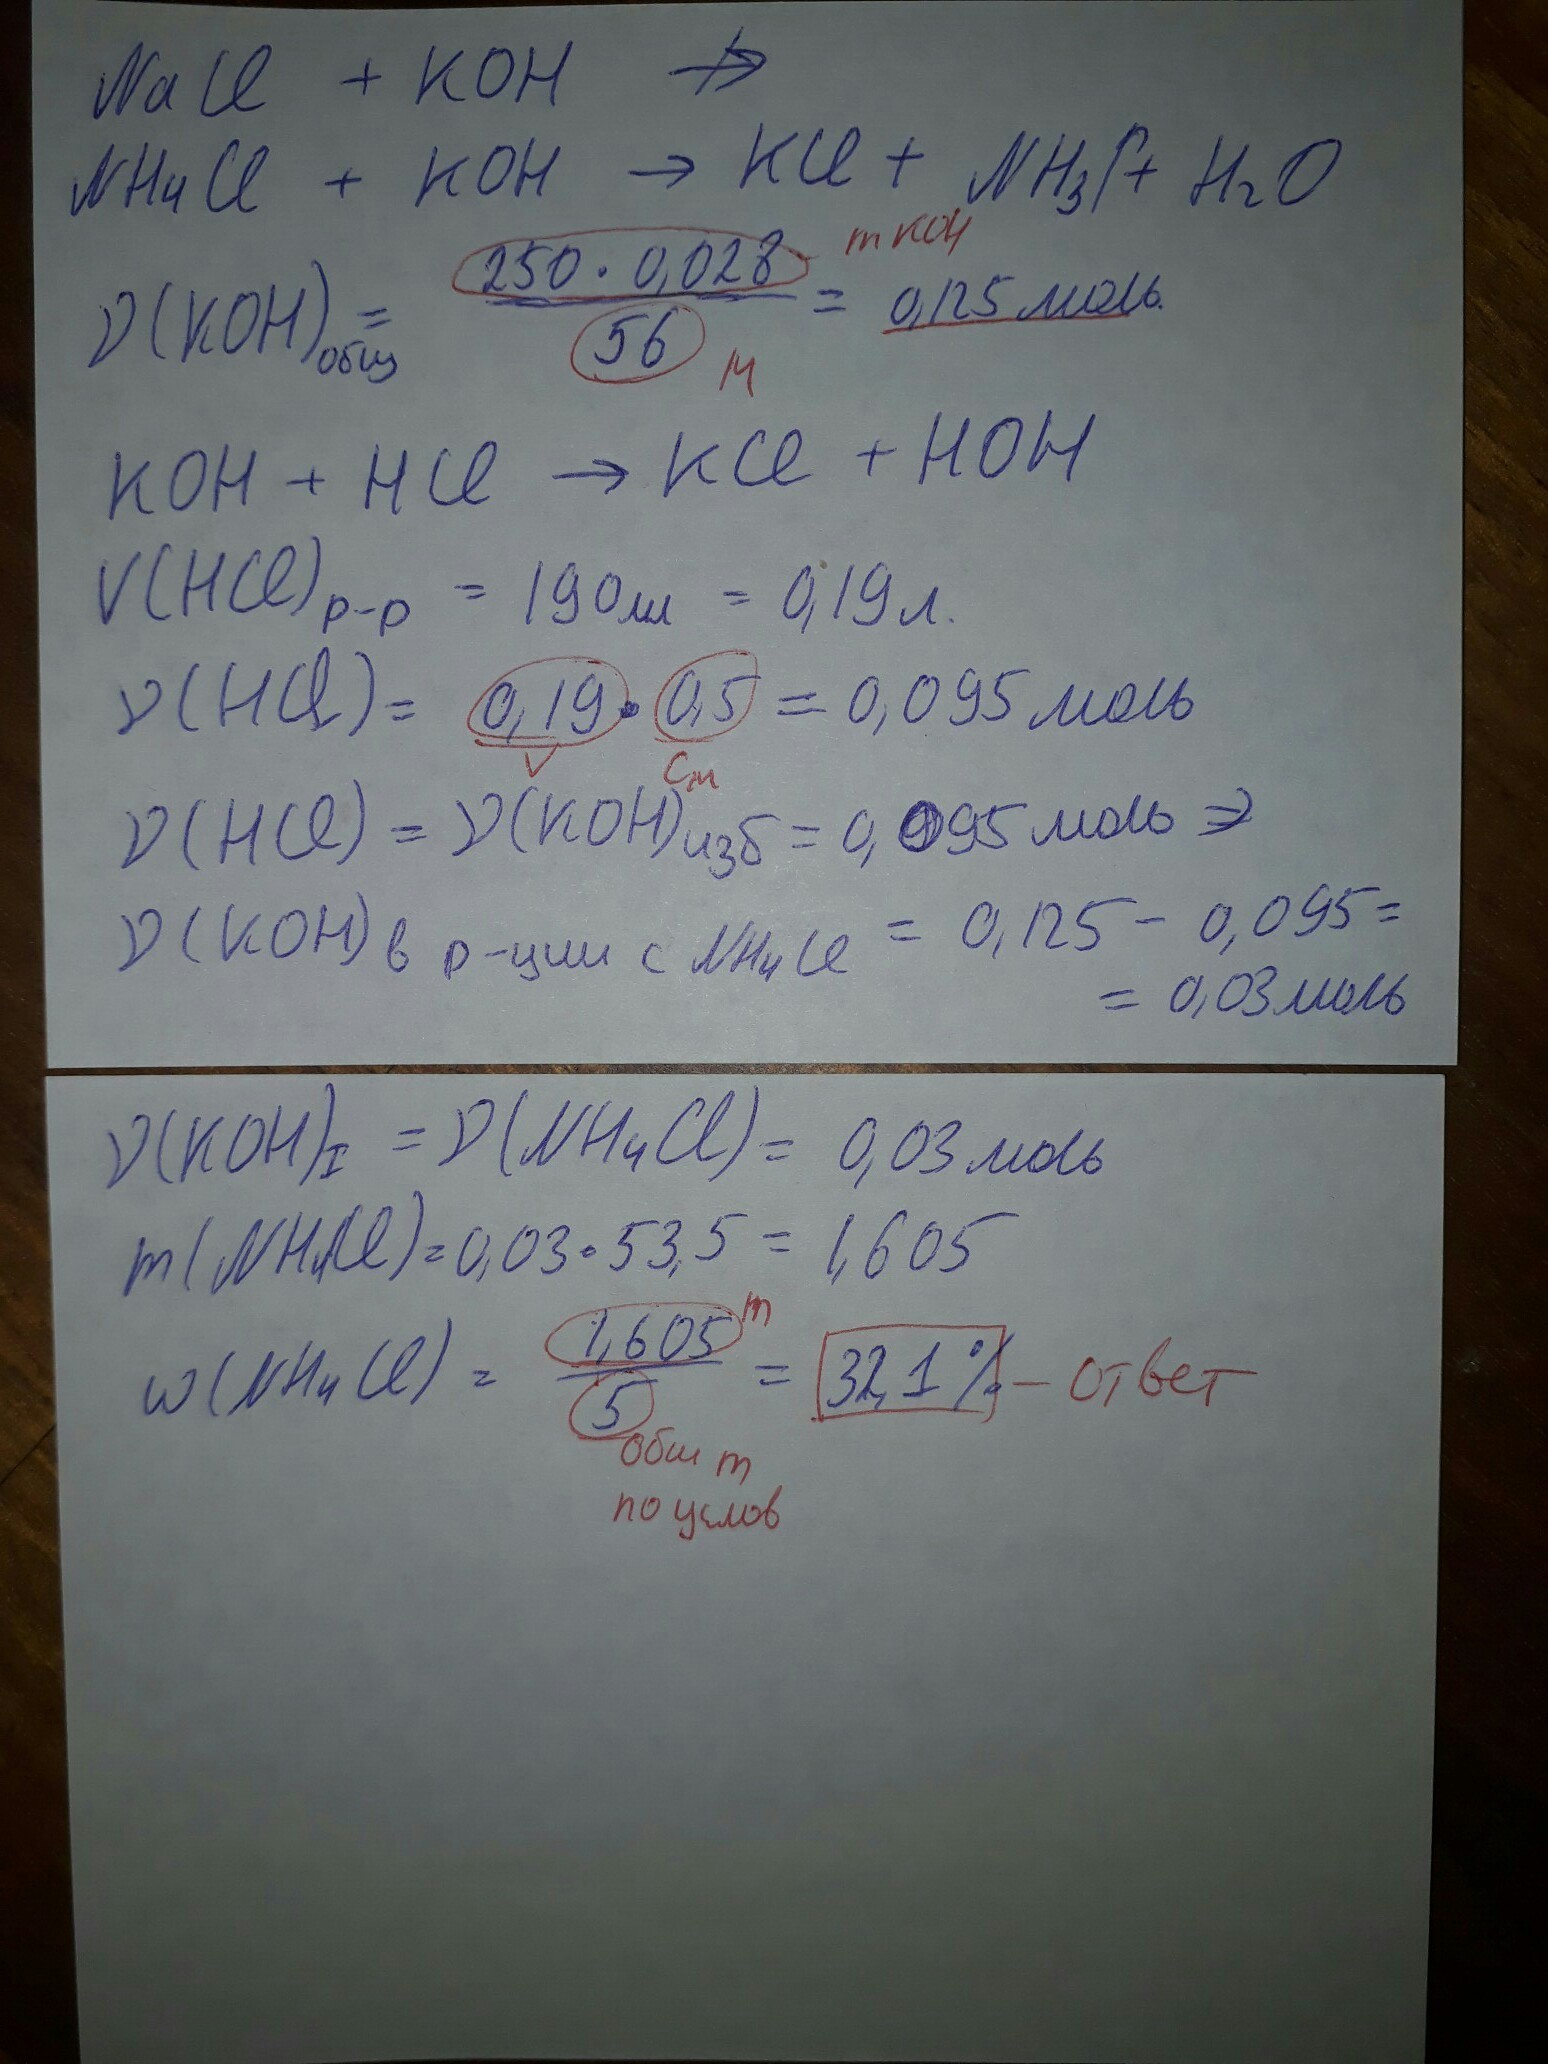 NaCl + KOH ↛
NH₄Cl + KOH → KCl + NH₃↑ + H₂O
ν(KOH)общ = 250 · 0,028 / 56 = 0,125 моль.
m KOH
M
KOH + HCl → KCl + HOH
V(HCl)р-р = 190 мл = 0,19 л.
ν(HCl) = 0,19 · 0,5 = 0,095 моль
V Cm
ν(HCl) = ν(KOH)изб = 0,095 моль ⇒
ν(KOH) в р-ции с NH₄Cl = 0,125 - 0,095 =
= 0,03 моль
ν(KOH)I = ν(NH₄Cl) = 0,03 моль
m(NH₄Cl) = 0,03 · 53,5 = 1,605
ω(NH₄Cl) = 1,605 / 5 = 32,1 % – ответ
m
общ m
по услов